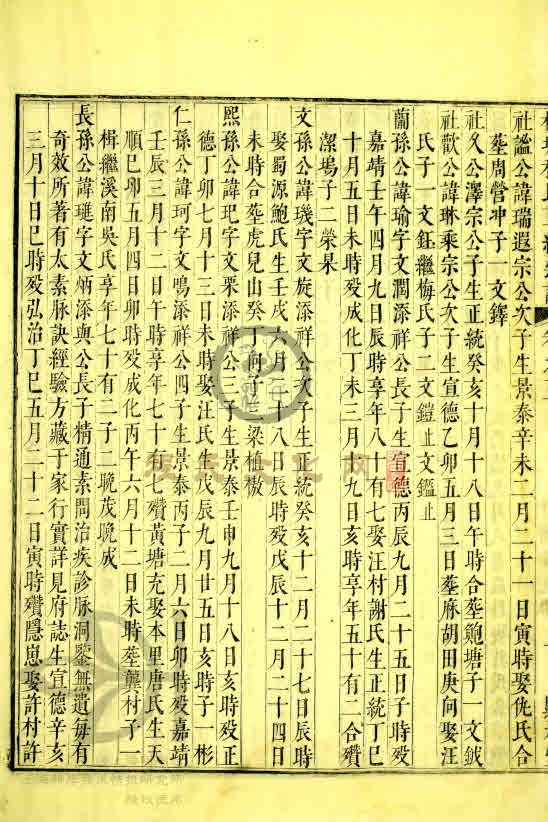 社謐公諱瑞遐宗公次子生景泰辛未二月二十一日寅時娶仇氏合
葬周營冲子一文鐸
社久公澤宗公子生正統癸亥十月十八日午時合葬鮑塘子一文鉞
社歡公諱琳乘宗公次子生宣德乙卯五月三日葬麻胡田庚向娶汪
氏子一文鈺繼梅氏子二文鎧止文鑑止
蘭孫公諱瑜字文潤添祥公長子生宣德丙辰九月二十五日子時殁
嘉靖壬午四月九日辰時享年八十有七娶汪村謝氏生正統丁巳
十月五日未時殁成化丁未三月九日亥時享年五十有二合殯
潔塢子二榮杲
文孫公諱璣字文旋添祥公次子生正統癸亥十二月二十七日辰時
娶蜀源鮑氏生壬戌六月二十八日辰時殁戊辰十二月二十四日
未時合葬虎兒山癸丁向子三梁植檄
熙孫公諱玘字文栗添祥公三子生景泰壬申九月十八日亥時殁正
德丁卯七月十三日未時娶汪氏生戊辰九月廿五日亥時子一彬
仁孫公諱珂字文鳴添祥公四子生景泰丙子二月六日卯時殁嘉靖
壬辰三月十二日午時享年七十有七殯黃塘充娶本里唐氏生天
順己卯五月四日卯時殁成化丙午六月十二日未時葬龔村子一
楫繼溪南吳氏享年七十有二子二晚茂晚成
長孫公諱璡字文炳添與公長子精通素問治疾診脉洞鑒無遺每有
奇效所著有太素脉訣經驗方藏于家行實詳見府誌生宣德辛亥
三月十日巳時殁弘治丁巳五月二十二日寅時殯隱崽娶許村許